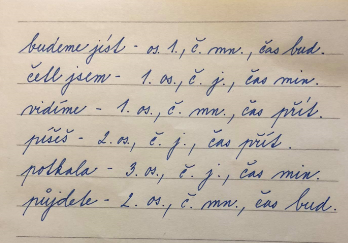 budeme jíst - os. 1., č. mn., čas bud.
četl jsem - 1. os., č. j., čas min.
vidíme - 1. os., č. mn., čas přít.
píšeš - 2. os., č. j., čas přít.
potkala - 3. os., č. j., čas min.
půjdete - 2. os., č. mn., čas bud.